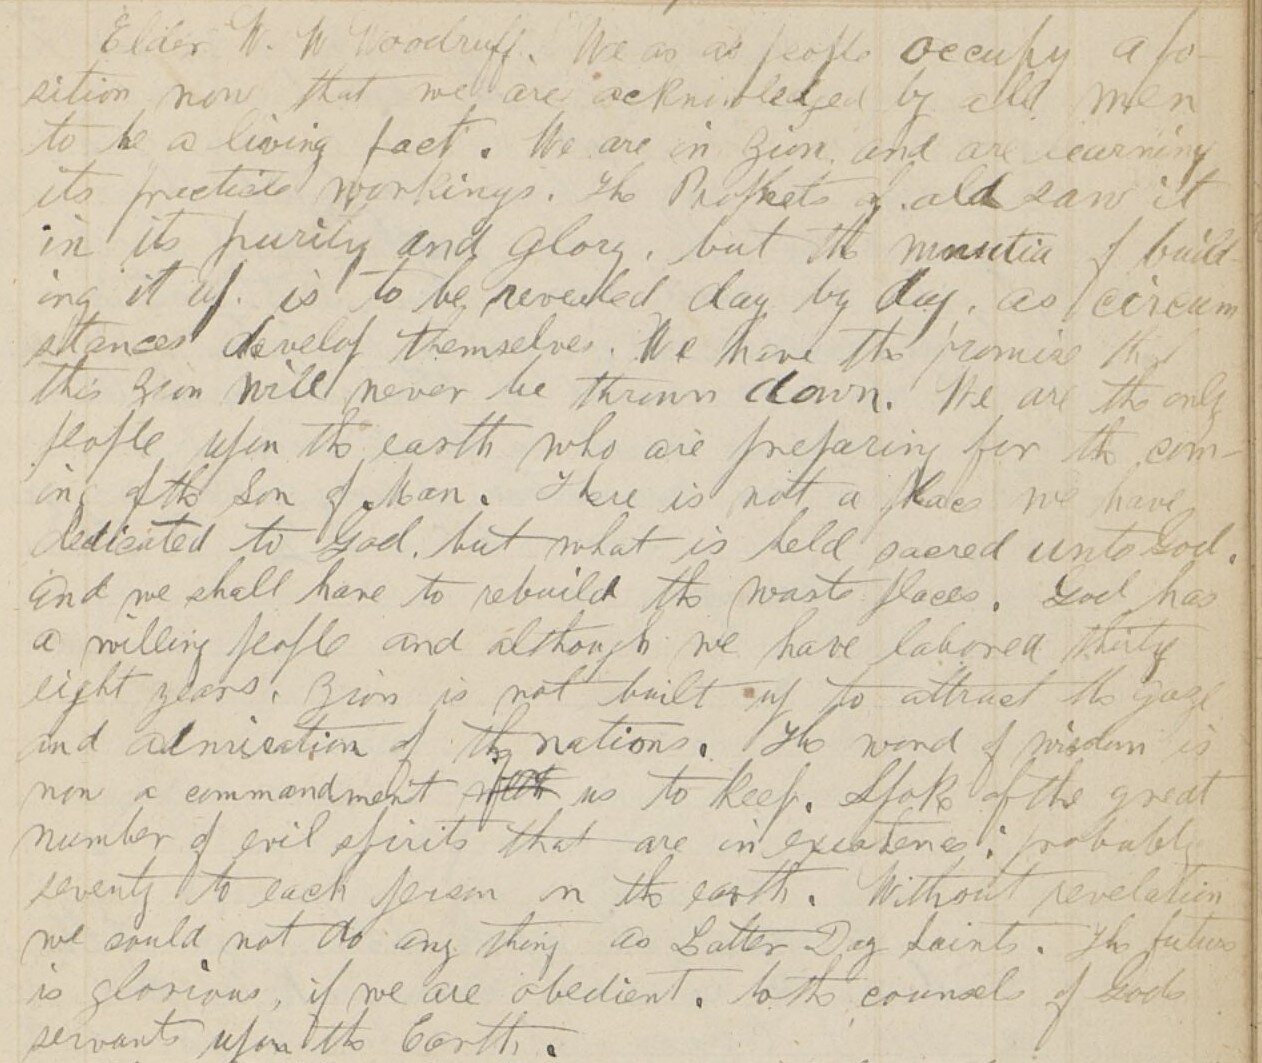 Elder W. W Woodruff. We as a people occupy a po-
sition now that we are acknowledged by all men
to be a living fact. We are in Zion. and are learning
its practical workings. The Prophets of old saw it
in its purity and glory. but the minutia of build-
ing it up. is to be revealed day by day. as circum
stances develop themselves. We have the promise that
this Zion will never be thrown down. We are the only
people upon the earth who are preparing for the com-
ing of the Son of Man. There is not a place we have
dedicated to God. but what is held sacred unto God.
and we shall have to rebuild the waste places. God has
a willing people and although we have labored thirty
eight years. Zion is not built up to attract the gaze
and admiration of the nations. The word of wisdom is
now a commandment us to keep. Spoke of the great
number of evil spirits that are in existence; probably
seventy to each person on the earth. Without revelation
we could not do any thing as Latter Day Saints. The future
is glorious, if we are obedient. to the counsels of Gods
servants upon the Earth.